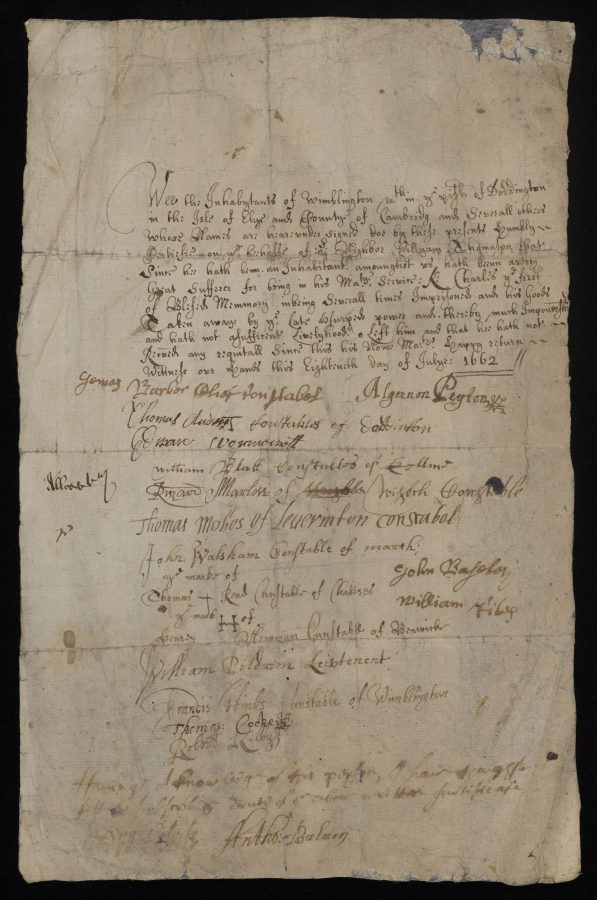 Wee the Inhabytants of Wimblington wthin ye pish of Doddington
in the Isle of Elye and County of Cambridg and Severall others
whose Names are heareunder signed doe by these presents humbly
Certifie on ye behalfe of or Neighbor William Thomason that
Since hee hath beene an Inhabitant amoungst us hath beene a very
Great Sufferer for being in his Mates Service: K: Charles ye first
of Blessed Memmory inbeing Severall times Imprisoned and his Goods
Taken away by ye Late Usurped power and thereby much Impoverished
and hath not a sufficient Livelyhood Left him and that hee hath not
Receved any requitall Since this his Now Mates Happy return
Wittness our hands this Eighteenth day of Julye: 1662
Barbor Chief Constabel
Algernon Peyton
Thomas Constables of Dodinton
William Constables of
Marlow of Wisbch Constable
Thomas Mobes of Leuerinton Constabol
John Walsham Constable of march:
ye marke of
John Baseley
Thomas + Read Constable of Chatteres
William
ye mark of
Henery Constable of Benwicke
William Pildrim Leiutenent
Francis Hinds Constable of Wimblington
Thomas:
Robert
of this person, I have
of ye above written Certificate
Antho: Balam